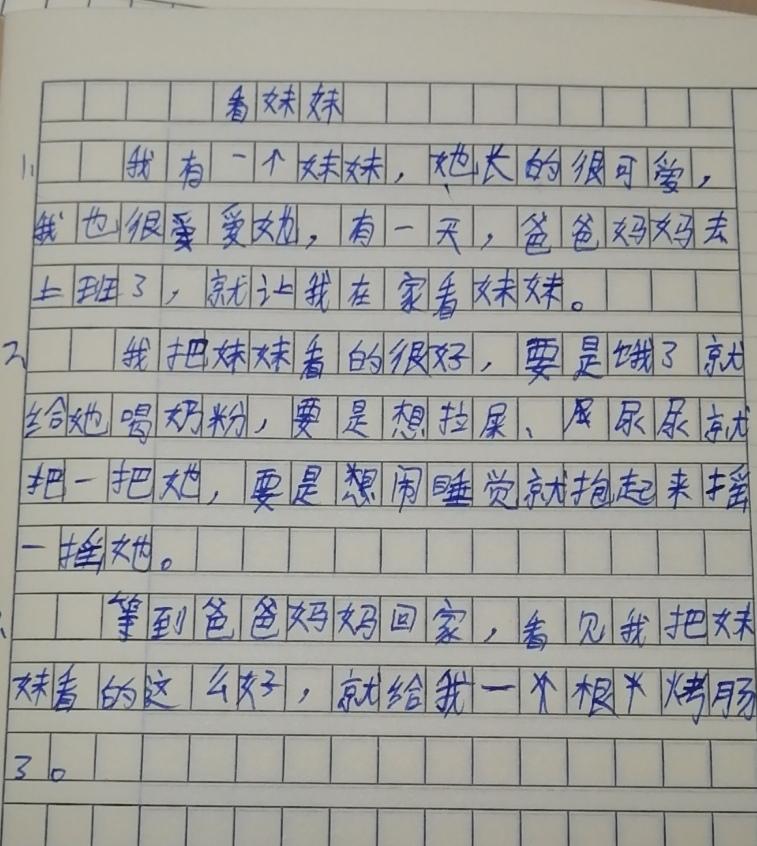 看妹妹
1. 我有一个妹妹，她长的很可爱，
我也很爱爱她，有一天，爸爸妈妈去
上班了，就让我在家看妹妹。
2 我把妹妹看的很好，要是饿了就
给她喝奶粉，要是想拉屎、尿尿就
把一把她，要是想闹睡觉就抱起来摇
一摇她。
等到爸爸妈妈回家，看见我把妹
妹看的这么好，就给我一根烤肠
了。